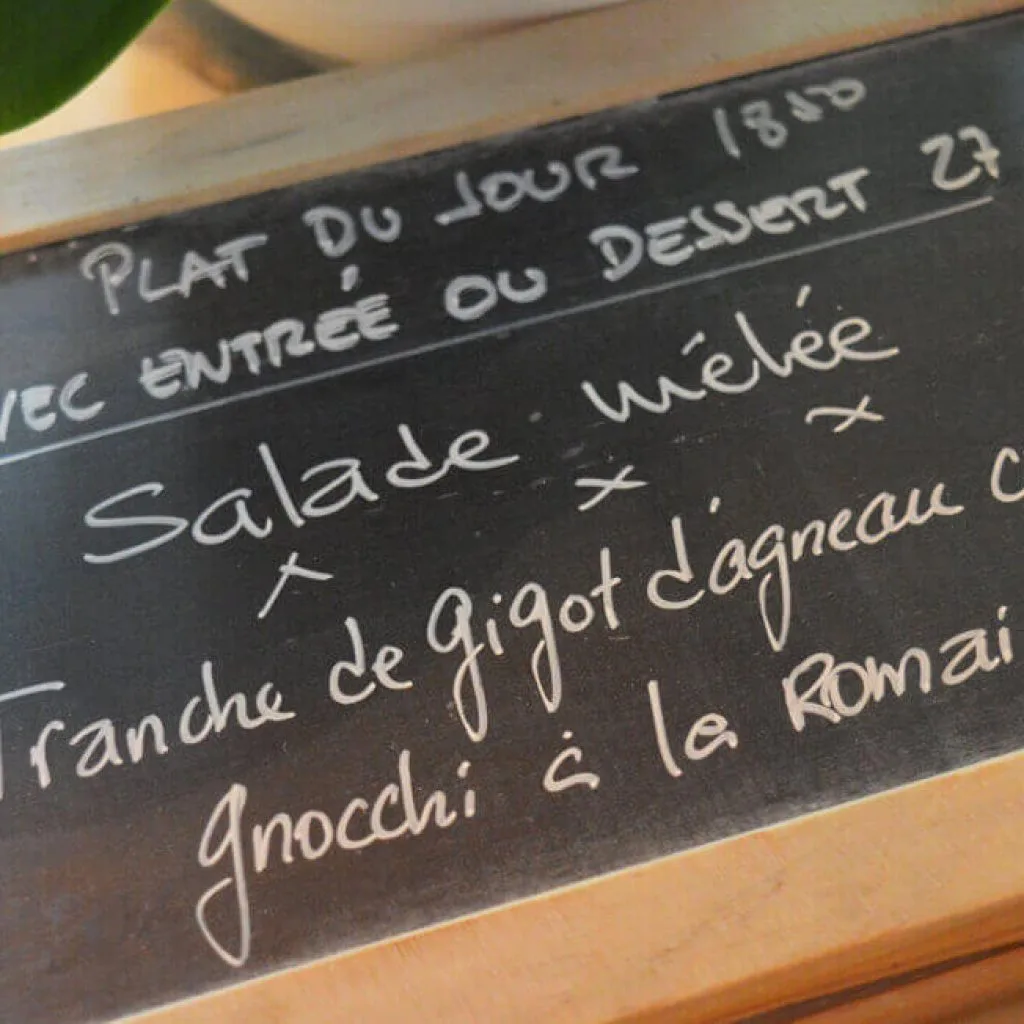 PLAT DU JOUR 1850
VEC ENTRÉE OU DESSERT 27
Salade mélée
x x x
Tranche de Gigot d'agneau c
gnocchi à la Romai